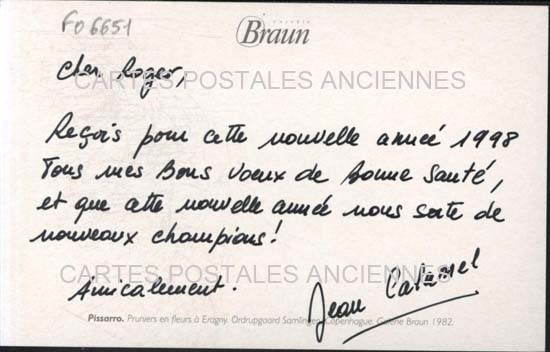 FO 6651
GALERIE
Braun
Cher Roger,
CARTES POSTALES ANCIENNES
Reçois pour cette nouvelle année 1998
Tous mes Bons Voeux de Bonne Santé,
et que cette nouvelle année nous sorte de
nouveaux champions!
CARTES POSTALES ANCIENNES
Amicalement.
Jean
Pissarro. Pruniers en fleurs à Eragny. Ordrupgaard Samlingen, Copenhague. Galerie Braun 1982.